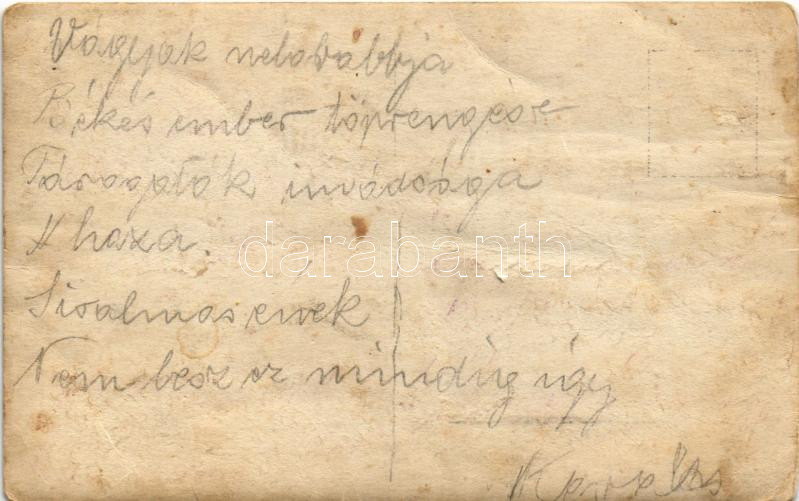 Vágyak netovábbja
Békés ember töprengése
Tárogatók imádsága
A haza.
Siralmas évek
Nem lesz ez mindig így
darabanth